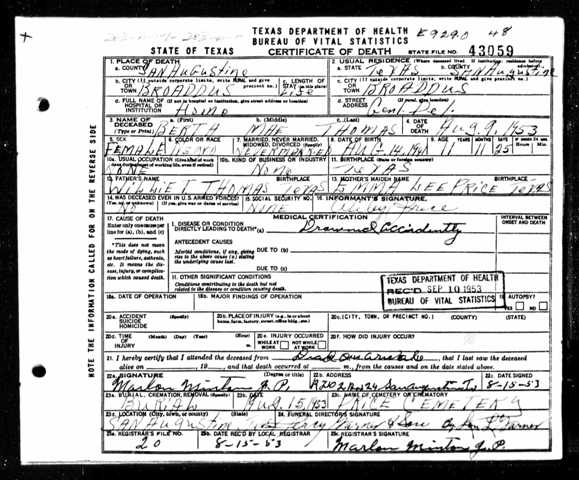 TEXAS DEPARTMENT OF HEALTH E9290 48
BUREAU OF VITAL STATISTICS
STATE OF TEXAS CERTIFICATE OF DEATH STATE FILE NO. 43059
1. PLACE OF DEATH 2. USUAL RESIDENCE (Where deceased lived. If institution, residence before
a. COUNTY SAN Augustine a. STATE TeXAS b. COUNTY SAN Augustine
b. CITY (If outside corporate limits, write RURAL and give precinct no.) c. LENGTH OF STAY (in this place) c. CITY (If outside corporate limits, write RURAL and give precinct no.)
BROADDUS Life BROADDUS
d. FULL NAME OF (If not in hospital or institution, give street address or location) HOSPITAL OR INSTITUTION Home d. STREET ADDRESS (If rural, give location) Gen. Del.
3. NAME OF DECEASED (Type or Print) a. (First) b. (Middle) c. (Last) 4. DATE OF DEATH
BERTA MAE THOMAS Aug 9, 1953
5. SEX 6. COLOR OR RACE 7. MARRIED, NEVER MARRIED, WIDOWED, DIVORCED (Specify)
FEMALE NEVER MARRIED 11 25
10a. USUAL OCCUPATION (Give kind of work done during most of working life, even if retired) 10b. KIND OF BUSINESS OR INDUSTRY 11. BIRTHPLACE (State or foreign country)
NONE None TeXAS
13. FATHER'S NAME BIRTHPLACE MOTHER'S MAIDEN NAME BIRTHPLACE
WILLIE T THOMAS Texas EMMA LEE PRICE Texas
14. WAS DECEASED EVER IN U.S. ARMED FORCES? 15. SOCIAL SECURITY NO. 16. INFORMANT'S SIGNATURE
No NONE Price
17. CAUSE OF DEATH MEDICAL CERTIFICATION INTERVAL BETWEEN ONSET AND DEATH
Enter only one cause per line for (a), (b), and (c) I. DISEASE OR CONDITION DIRECTLY LEADING TO DEATH* (a) Drowned Accidently
*This does not mean the mode of dying, such as heart failure, asthenia, etc. It means the disease, injury, or complication which caused death.
ANTECEDENT CAUSES
Morbid conditions, if any, giving rise to the above cause (a) stating the underlying cause last. DUE TO (b)
DUE TO (c)
II. OTHER SIGNIFICANT CONDITIONS
Conditions contributing to the death but not related to the disease or condition causing death.
TEXAS DEPARTMENT OF HEALTH
REC'D SEP 10 1953
BUREAU OF VITAL STATISTICS
18a. DATE OF OPERATION 18b. MAJOR FINDINGS OF OPERATION 19. AUTOPSY? YES NO
20a. ACCIDENT SUICIDE HOMICIDE (Specify) 20b. PLACE OF INJURY (e.g., in or about home, farm, factory, street, office bldg., etc.) 20c. (CITY, TOWN, OR PRECINCT NO.) (COUNTY) (STATE)
20d. TIME OF INJURY (Month) (Day) (Year) (Hour) 20e. INJURY OCCURRED WHILE AT WORK NOT WHILE AT WORK 20f. HOW DID INJURY OCCUR?
21. I hereby certify that I attended the deceased from Dead, that I last saw the deceased
alive on 19 , and that death occurred at m., from the causes and on the date stated above.
22a. SIGNATURE (Degree or title) 22b. ADDRESS 22c. DATE SIGNED
Marlon Minton J. P. 8-15-53
23a. BURIAL, CREMATION, REMOVAL (Specify) 23b. DATE 23c. NAME OF CEMETERY OR CREMATORY
BURIAL Aug 15, 1953 CEMETERY
23d. LOCATION (City, town, or county) (State) 24. FUNERAL DIRECTOR'S SIGNATURE
SAN Augustine
25a. REGISTRAR'S FILE NO. 25b. DATE REC'D BY LOCAL REGISTRAR 25c. REGISTRAR'S SIGNATURE
20 8-15-53 Marlon Minton J. P.
NOTE THE INFORMATION CALLED FOR ON THE REVERSE SIDE